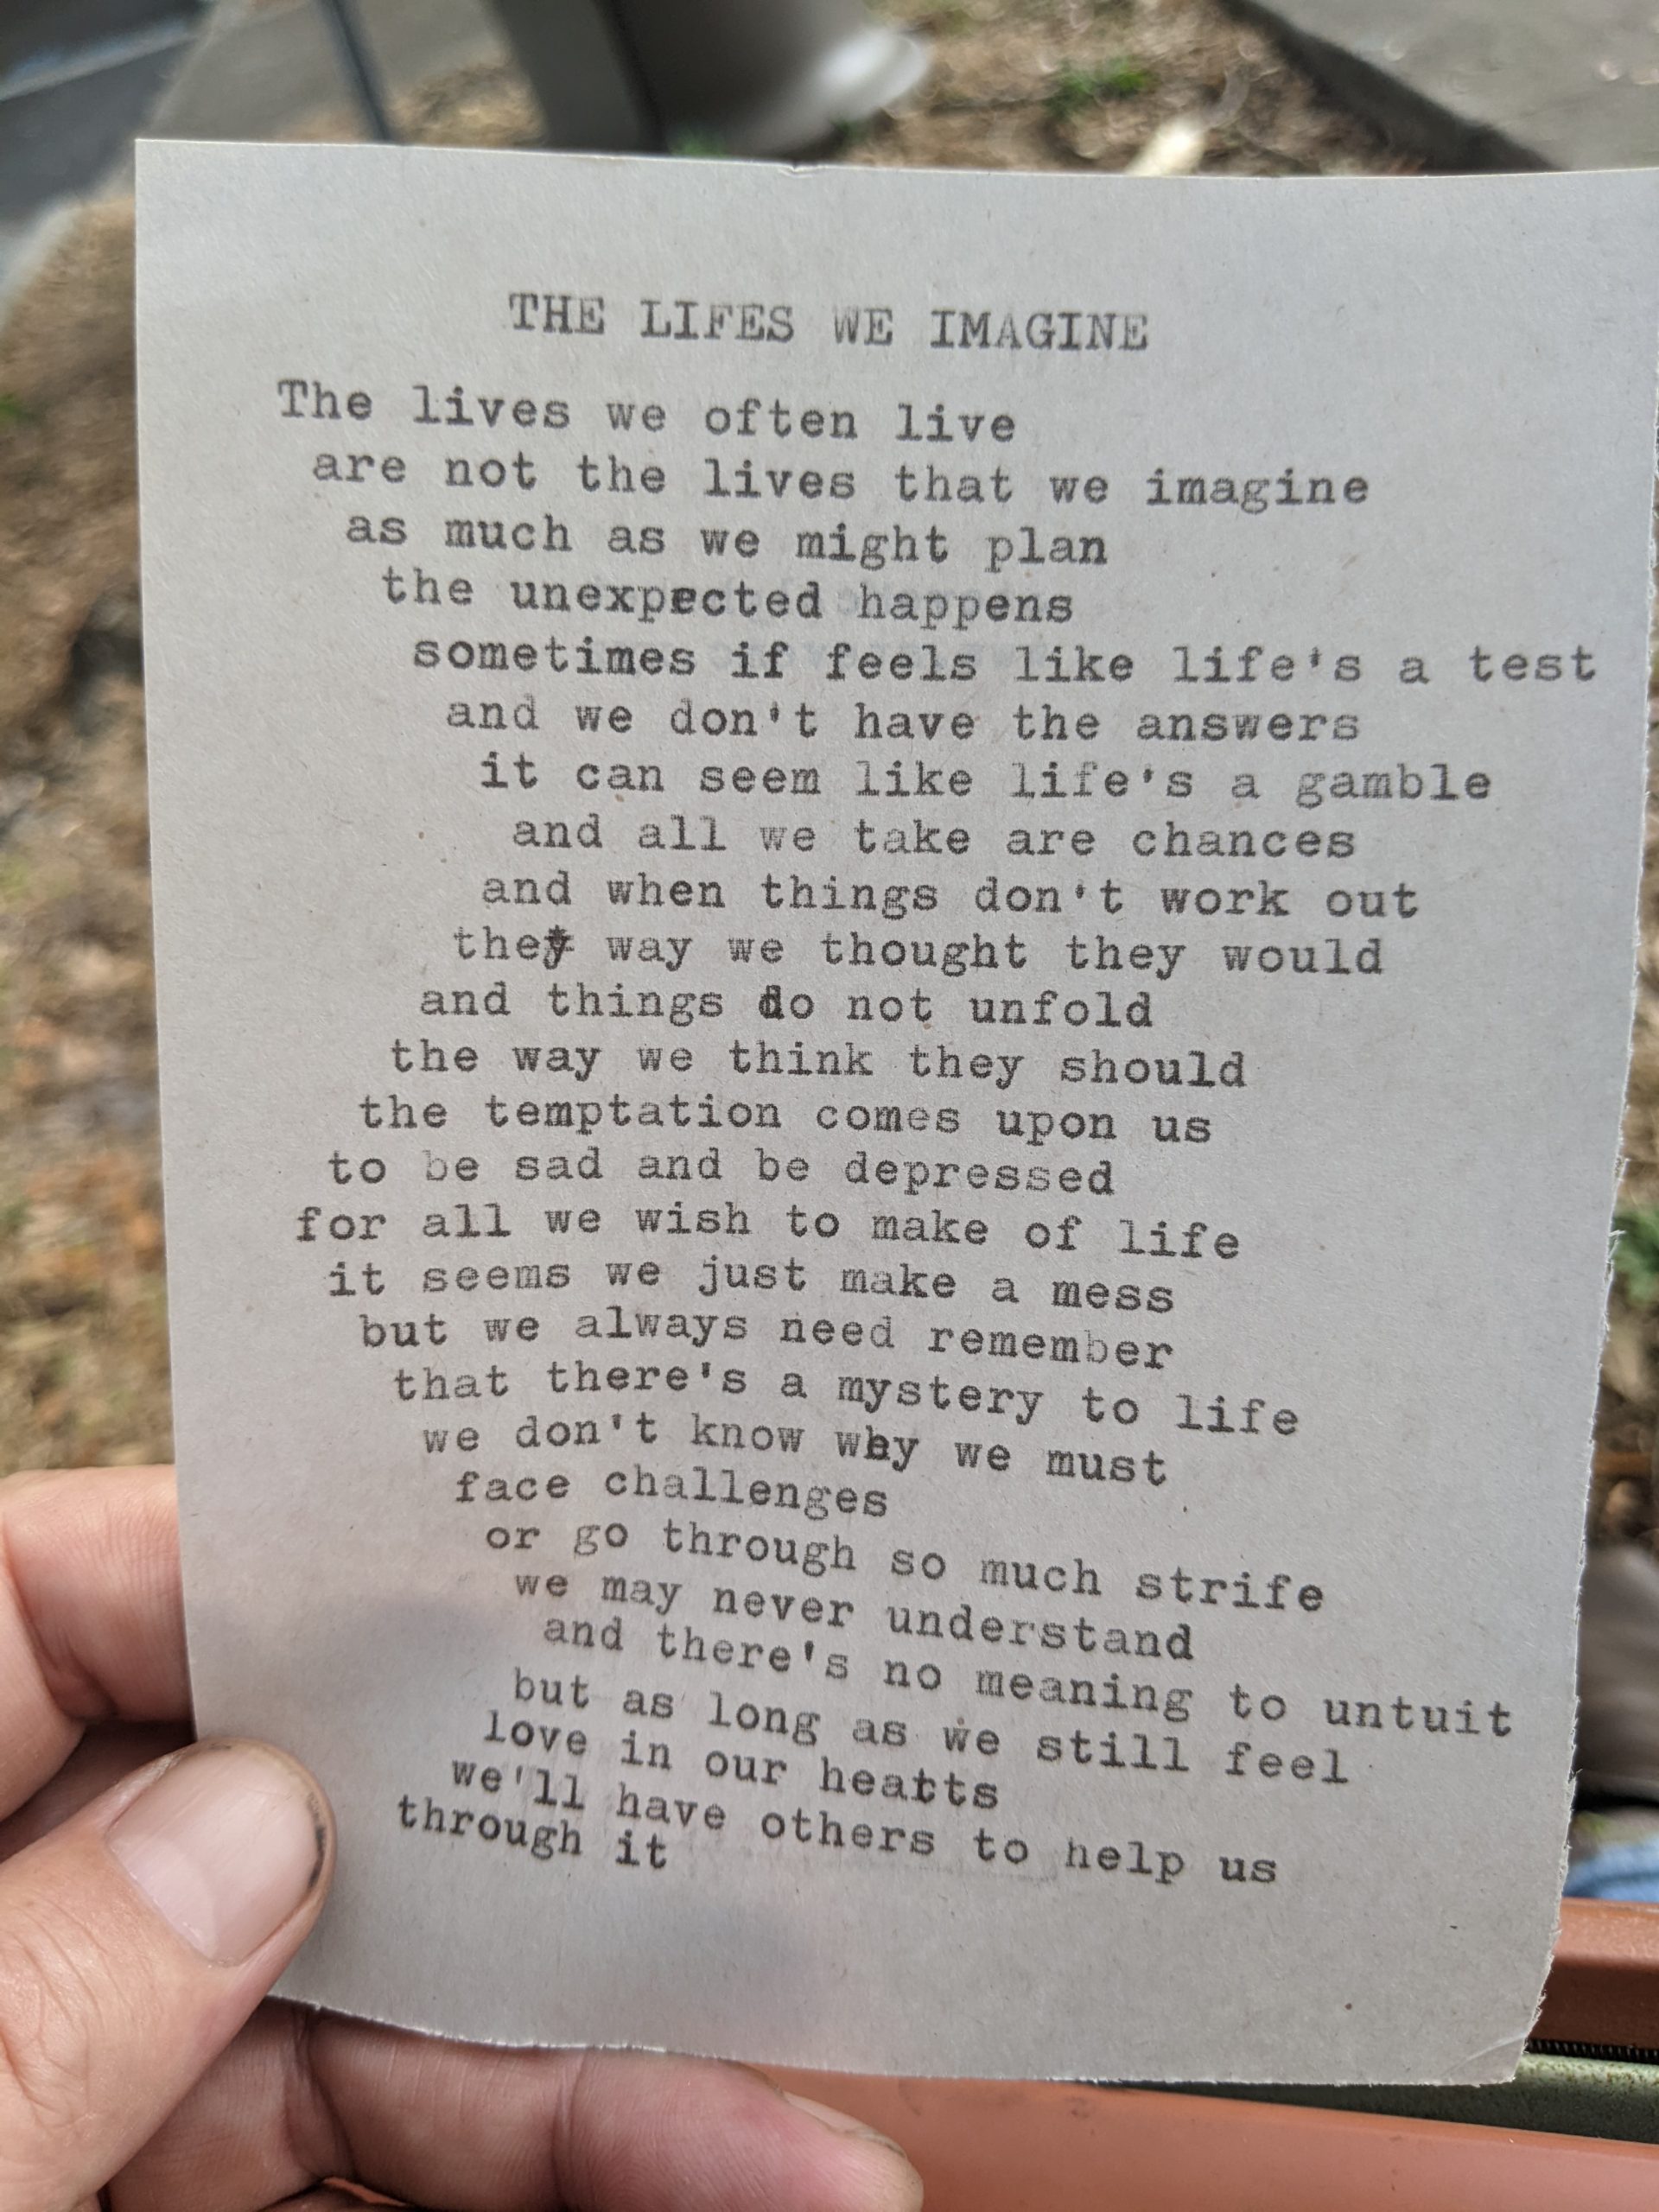 THE LIFES WE IMAGINE
The lives we often live
are not the lives that we imagine
as much as we might plan
the unexpected happens
sometimes if feels like life's a test
and we don't have the answers
it can seem like life's a gamble
and all we take are chances
and when things don't work out
they way we thought they would
and things do not unfold
the way we think they should
the temptation comes upon us
to be sad and be depressed
for all we wish to make of life
it seems we just make a mess
but we always need remember
that there's a mystery to life
we don't know why we must
face challenges
or go through so much strife
we may never understand
and there's no meaning to untuit
but as long as we still feel
love in our heatts
we'll have others to help us
through it